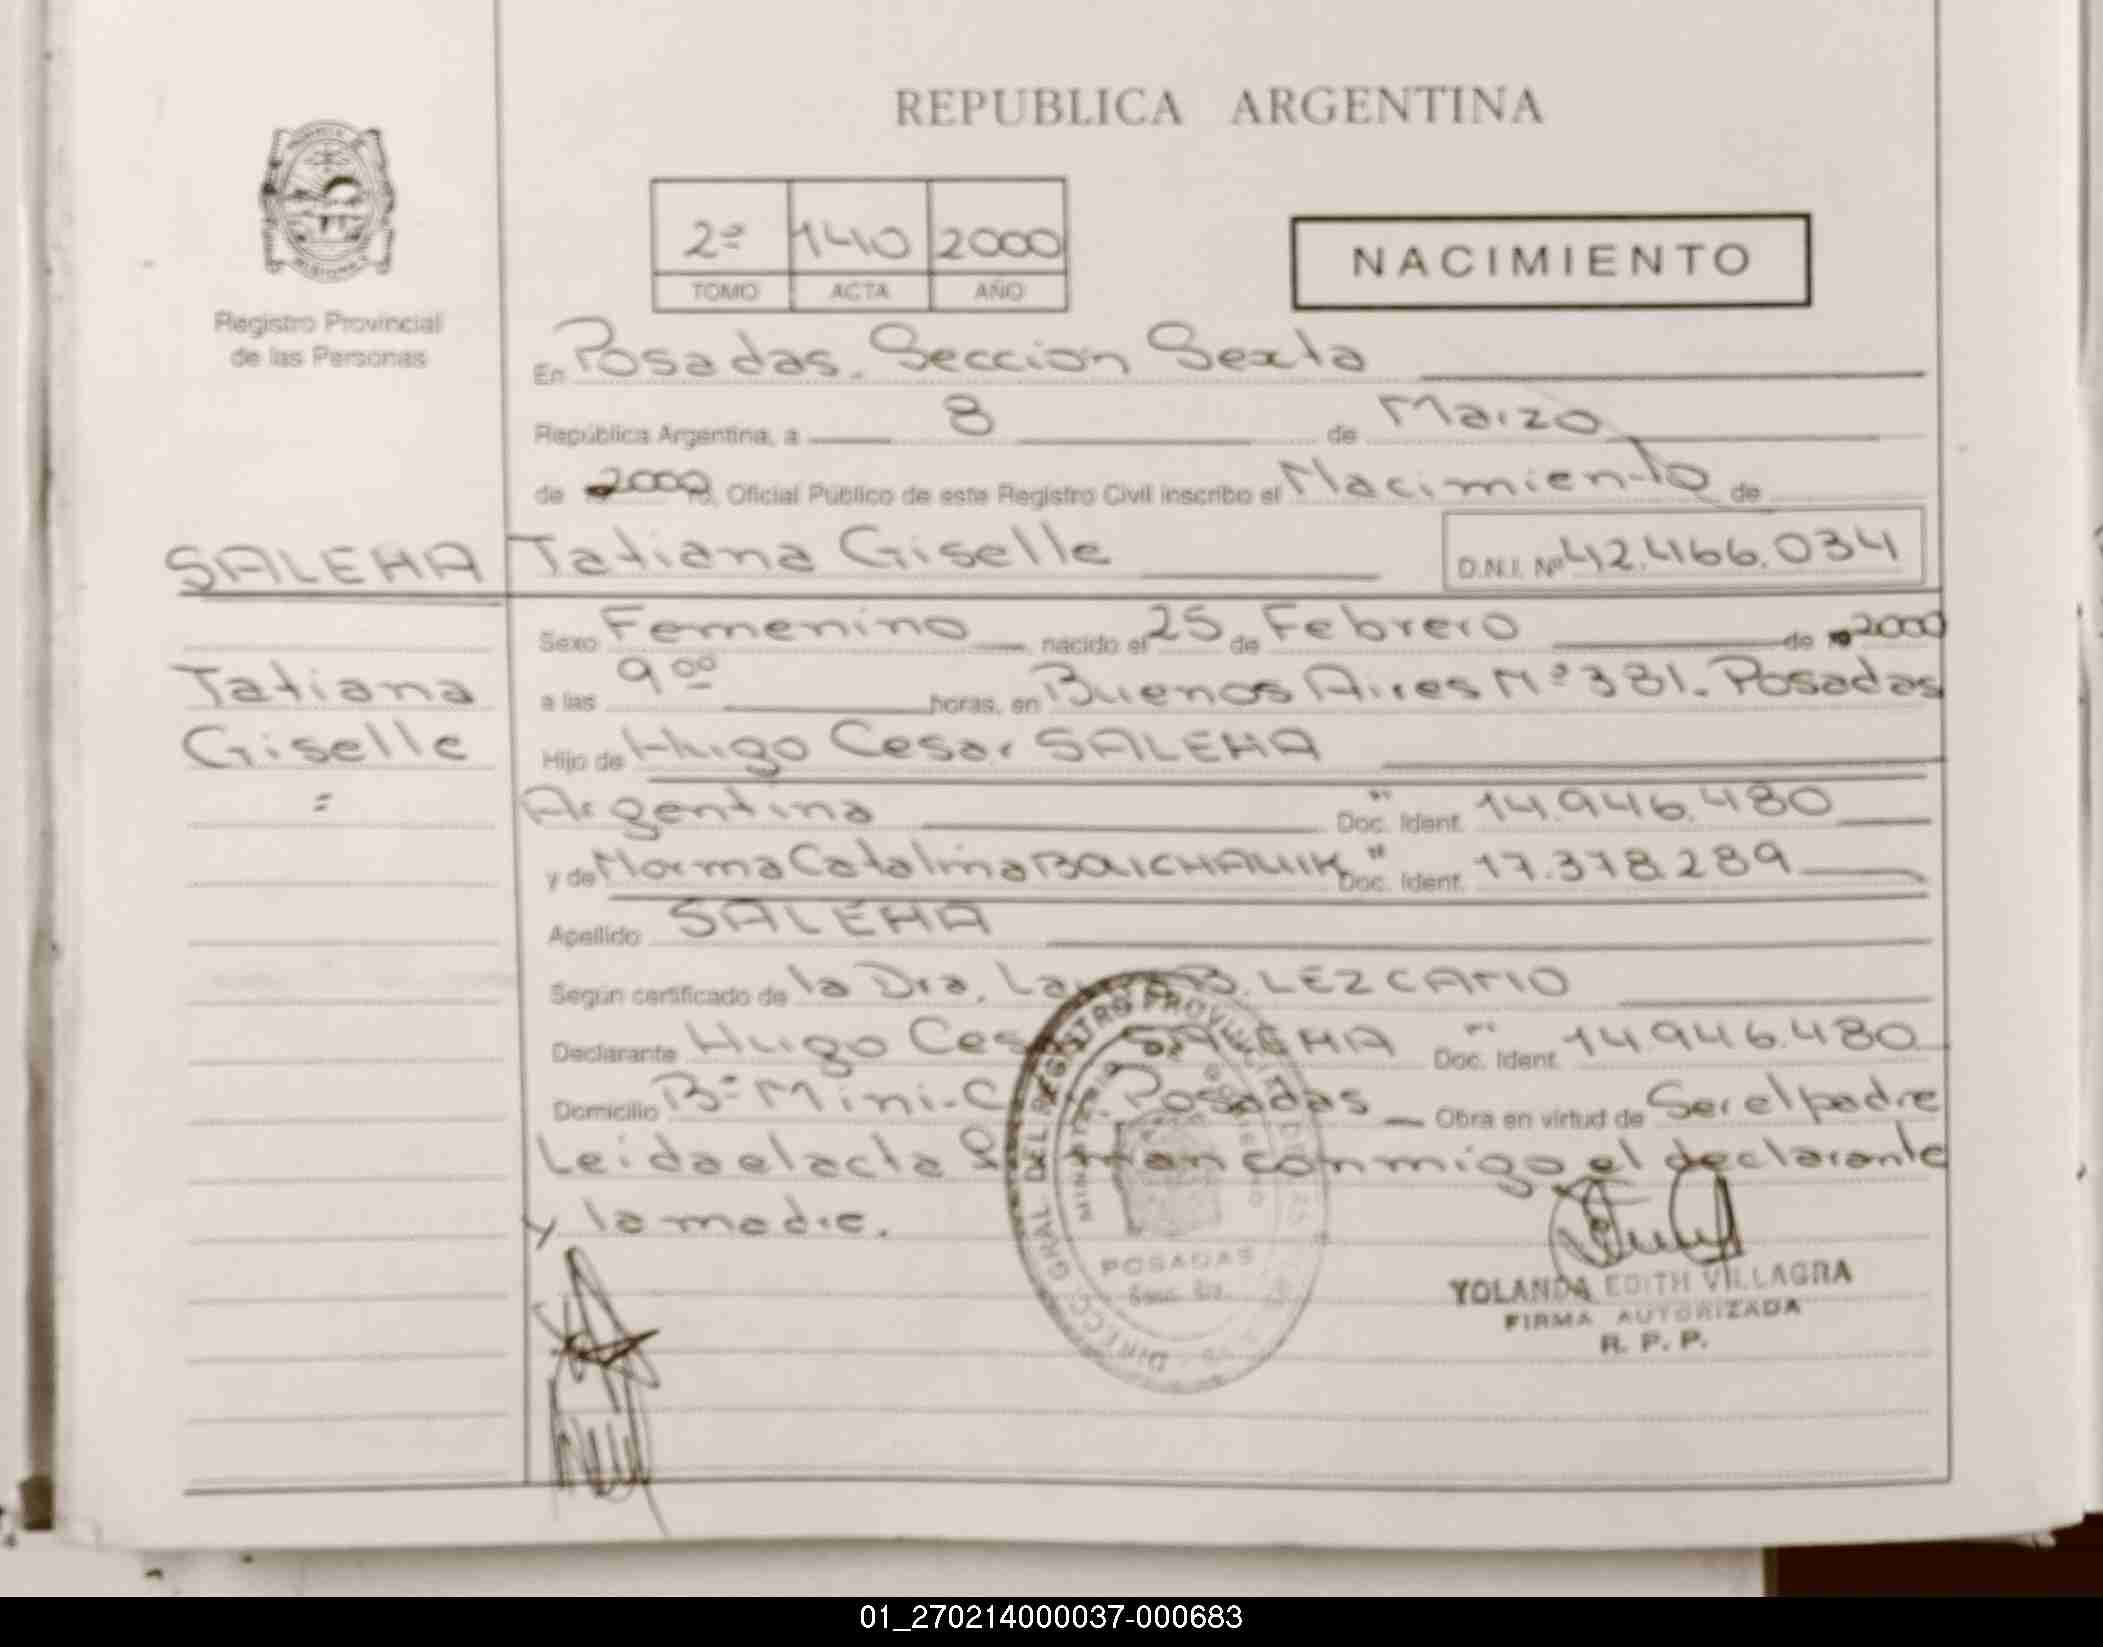 REPUBLICA ARGENTINA
2º 140 2000
TOMO ACTA AÑO
NACIMIENTO
Registro Provincial
de las Personas
En Posadas. Seccion Sexta
República Argentina, a 8 de Marzo
de 2000, Oficial Público de este Registro Civil inscribo el Nacimiento de
SALEHA Tatiana Giselle D.N.I. Nº 42.466.034
Sexo Femenino nacido el 25 de Febrero de 2000
Tatiana
a las 9 00 horas, en Buenos Aires Nº 381. Posadas
Giselle
Hijo de Hugo Cesar SALEHA
Argentina Doc. Ident. 14.946.480
y de Norma Catalina Doc. Ident. 17.378.289
Apellido SALEHA
Según certificado de la Dra. B. LEZCANO
Declarante Hugo Cesar SALEHA Doc. Ident. 14.946.480
Domicilio Bº Mini-C Posadas Obra en virtud de Ser el padre
Leida el acta conmigo el declarante
y la madre.
DIRECC. GRAL DEL REGISTRO PROVINCIAL
POSADAS
YOLANDA EDITH VILLAGRA
FIRMA AUTORIZADA
R. P. P.
01_270214000037-000683